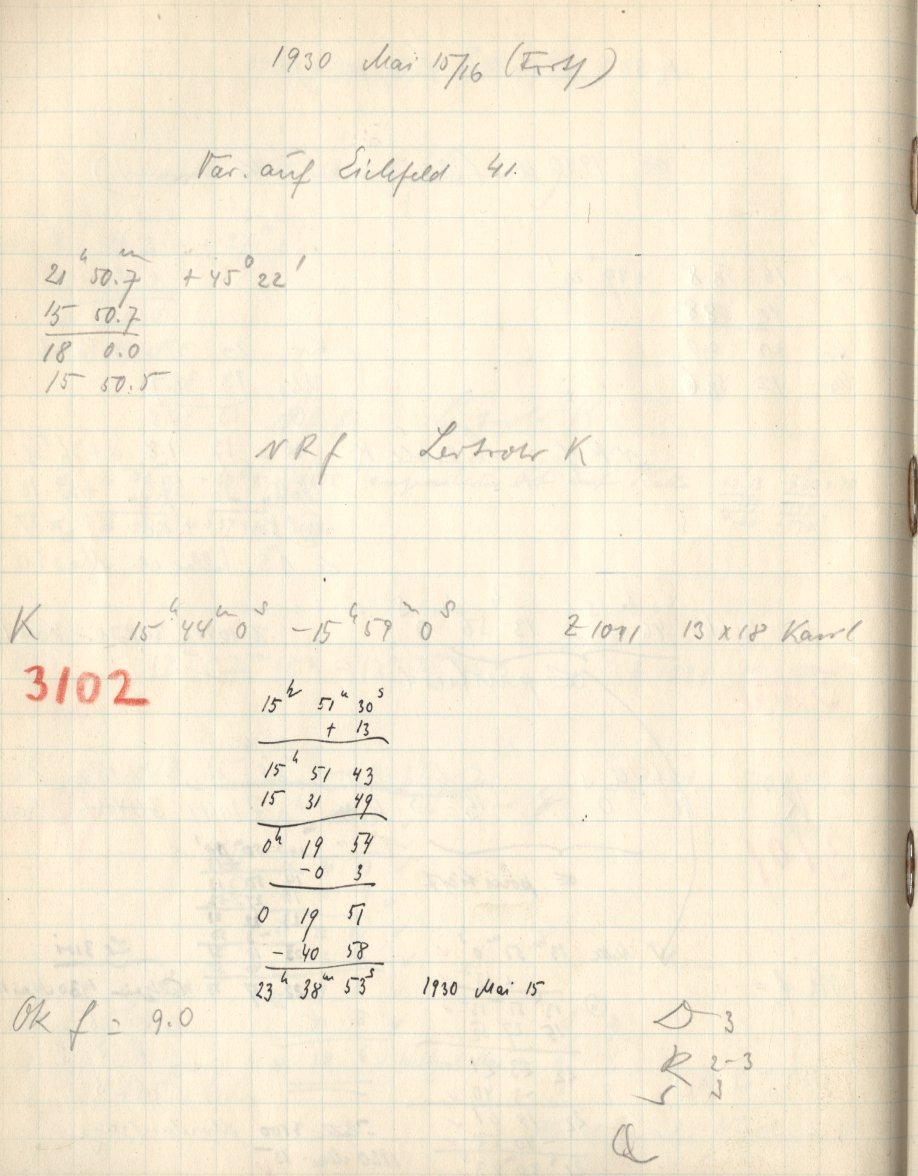 1930 Mai 15/16
Var. auf Eichfeld 41.
21ʰ 50.7ᵐ + 45° 22'
15 50.7
18 0.0
15 50.5
NRf Leitrohr K
K 15ʰ 44ᵐ 0ˢ - 15ʰ 59ᵐ 0ˢ Z 1091 13 x 18
3102
15ʰ 51ᵐ 30ˢ
+ 13
15ʰ 51 43
15 31 49
0ʰ 19 54
-0 3
0 19 51
- 40 58
23ʰ 38ᵐ 53ˢ 1930 Mai 15
Ok f = 9.0
D 3
R 2-3
S 3
Q